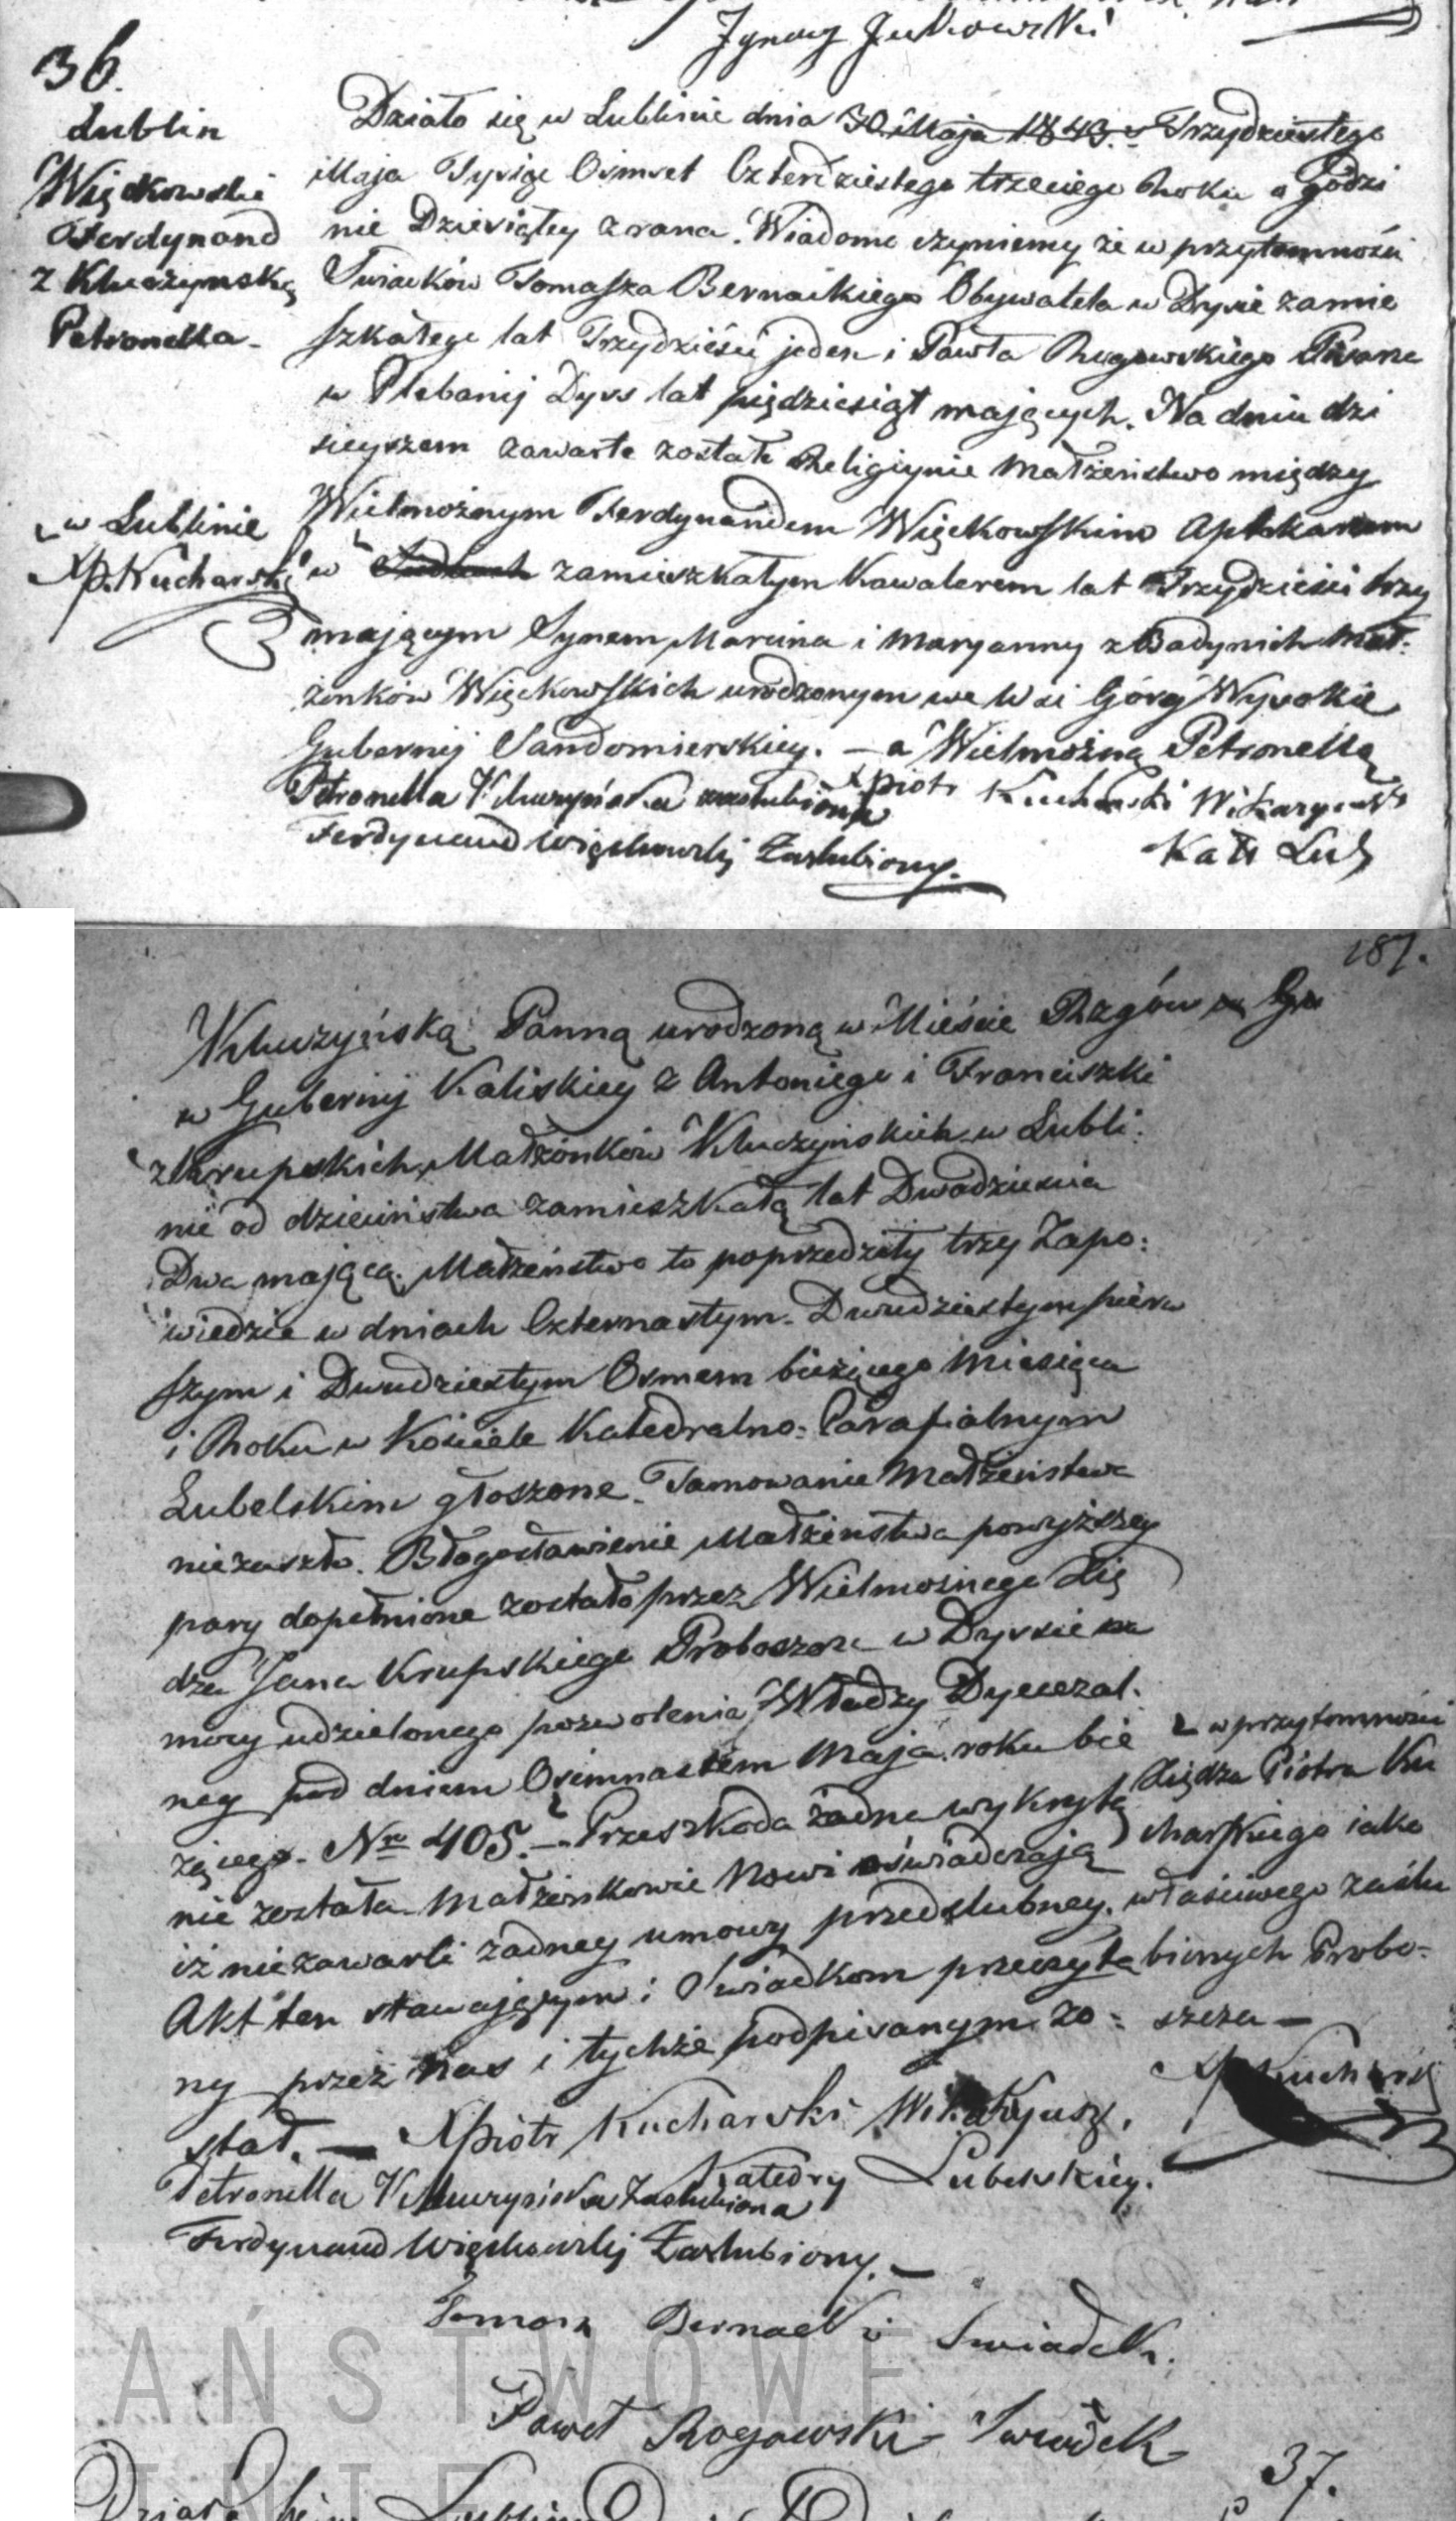 36.
Lublin
Więckowski
Ferdynand
z Kluczyńską
Petronella.
Działo się w Lublinie dnia 30. Maja 1843. r Trzydziestego
Maja Tysiąc Ośmset Czterdziestego trzeciego Roku o godzi
nie Dziewiątey zrana. Wiadomo czyniemy że w przytomności
Świadków Tomasza Bernackiego Obywatela w Dysie zamie
szkałego lat Trzydzieści jeden i Pawła Rogowskiego Pisarza
w Plebanij Dyss lat piędziesiąt mających. Na dniu dzi
sieyszem zawarte zostało Religiynie Małżeństwo między
Wielmożnym Ferdynandem Więckowskim Aptekarzem
w zamieszkałym Kawalerem lat Trzydzieści trzy
w Lublinie
Xp. Kucharski
mającym Synem Marcina i Maryanny z Badynich Mał:
żonków Więckowskich urodzonym we Wsi Góry Wysokie
Gubernij Sandomierskiey. – a Wielmożną Petronellą
Petronella Kluczyńska zaslubiona
Xpiotr Kucharski Wikaryusz
Ferdynand Więckowskj Zaslubiony.
Kat Lub
187.
Kluczyńską Panną urodzoną w Mieście Rzgów
w Gubernij Kaliskiey z Antoniego i Franciszki
z Krupskich Małżonków Kluczyńskich w Lubli:
nie od dzieciństwa zamieszkałą lat Dwadzieścia
Dwa mającą. Małżeństwo to poprzedziły trzy Zapo:
wiedzie w dniach Czternastym. Dwudziestym pierw
szym i Dwudziestym Osmem bieżącego Miesiąca
i Roku w Kościele Katedralno=Parafialnym
Lubelskim głoszone. Tamowanie Małżeństwa
niezaszło. Błogosławienie Małżeństwa powyższey
pary dopełnione zostało przez Wielmożnego Xię
dza Jana Krupskiego Proboszcza w Dyssie na
mocy udzielonego pozwolenia Władzy Dyecezal:
ney pod dniem Ośimnastem Maja roku bie
żącego. Nro 405. – Przeszkoda żadna wykrytą
nie została. Małżonkowie Nowi oświadczają
iż niezawarli żadney umowy przedslubney.
Akt ten stawającym i Świadkom przeczyta
ny przez Nas i tychże podpisanym zo:
stał. —
w przytomności
Xiędza Piotra Ku
charskiego iako
właściwego zaślu
bionych Probo=
szcza —
Xp Kucharski
Xpiotr Kucharski Wikaryusz.
Katedry Lubelskiey.
Petronella Kluczyńska Zaslubiona
Ferdynand Więckowskj Zaslubiony. —
Tomasz Bernacki Swiadek.
Paweł Rogowski Swiadek
37.
AŃSTWOWE